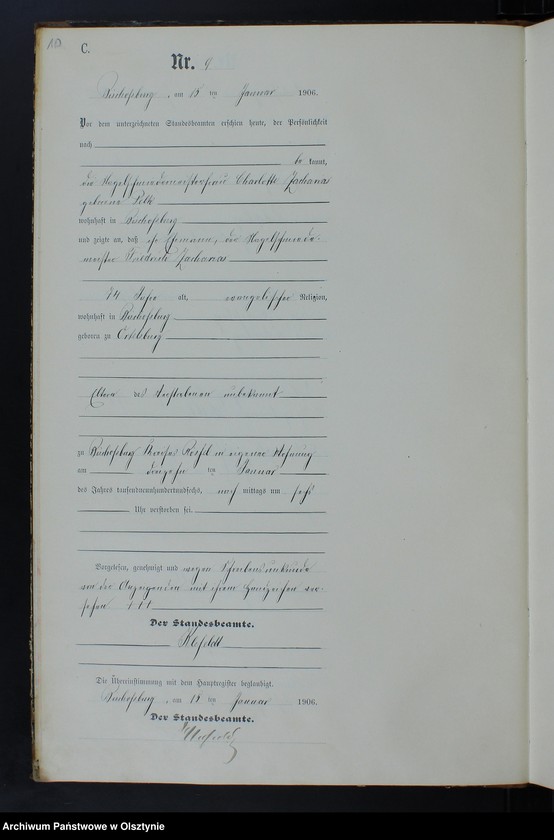 C.
Nr. 9
Bischofsburg, am 15 ten Januar 1906.
Vor dem unterzeichneten Standesbeamten erschien heute, der Persönlichkeit
nach
be kannt,
die Nagelschmiedemeisterfrau Charlotte Zacharias
geborene
wohnhaft in Bischofsburg
und zeigte an, daß ihr Ehemann, der Nagelschmiede-
meister Friedrich Zacharias
74 Jahre alt, evangelischer Religion,
wohnhaft in Bischofsburg
geboren zu Ortelsburg
Eltern des Verstorbenen unbekannt
zu Bischofsburg in eigener Wohnung
am ten Januar
des Jahres tausendneunhundertundsechs, nach mittags um sechs
Uhr verstorben sei.
Vorgelesen, genehmigt und wegen Schreibensunkunde
von der Anzeigenden mit ihrem Handzeichen ver-
sehen +++
Der Standesbeamte.
Die Übereinstimmung mit dem Hauptregister beglaubigt.
Bischofsburg, am 15 ten Januar 1906.
Der Standesbeamte.
Archiwum Państwowe w Olsztynie